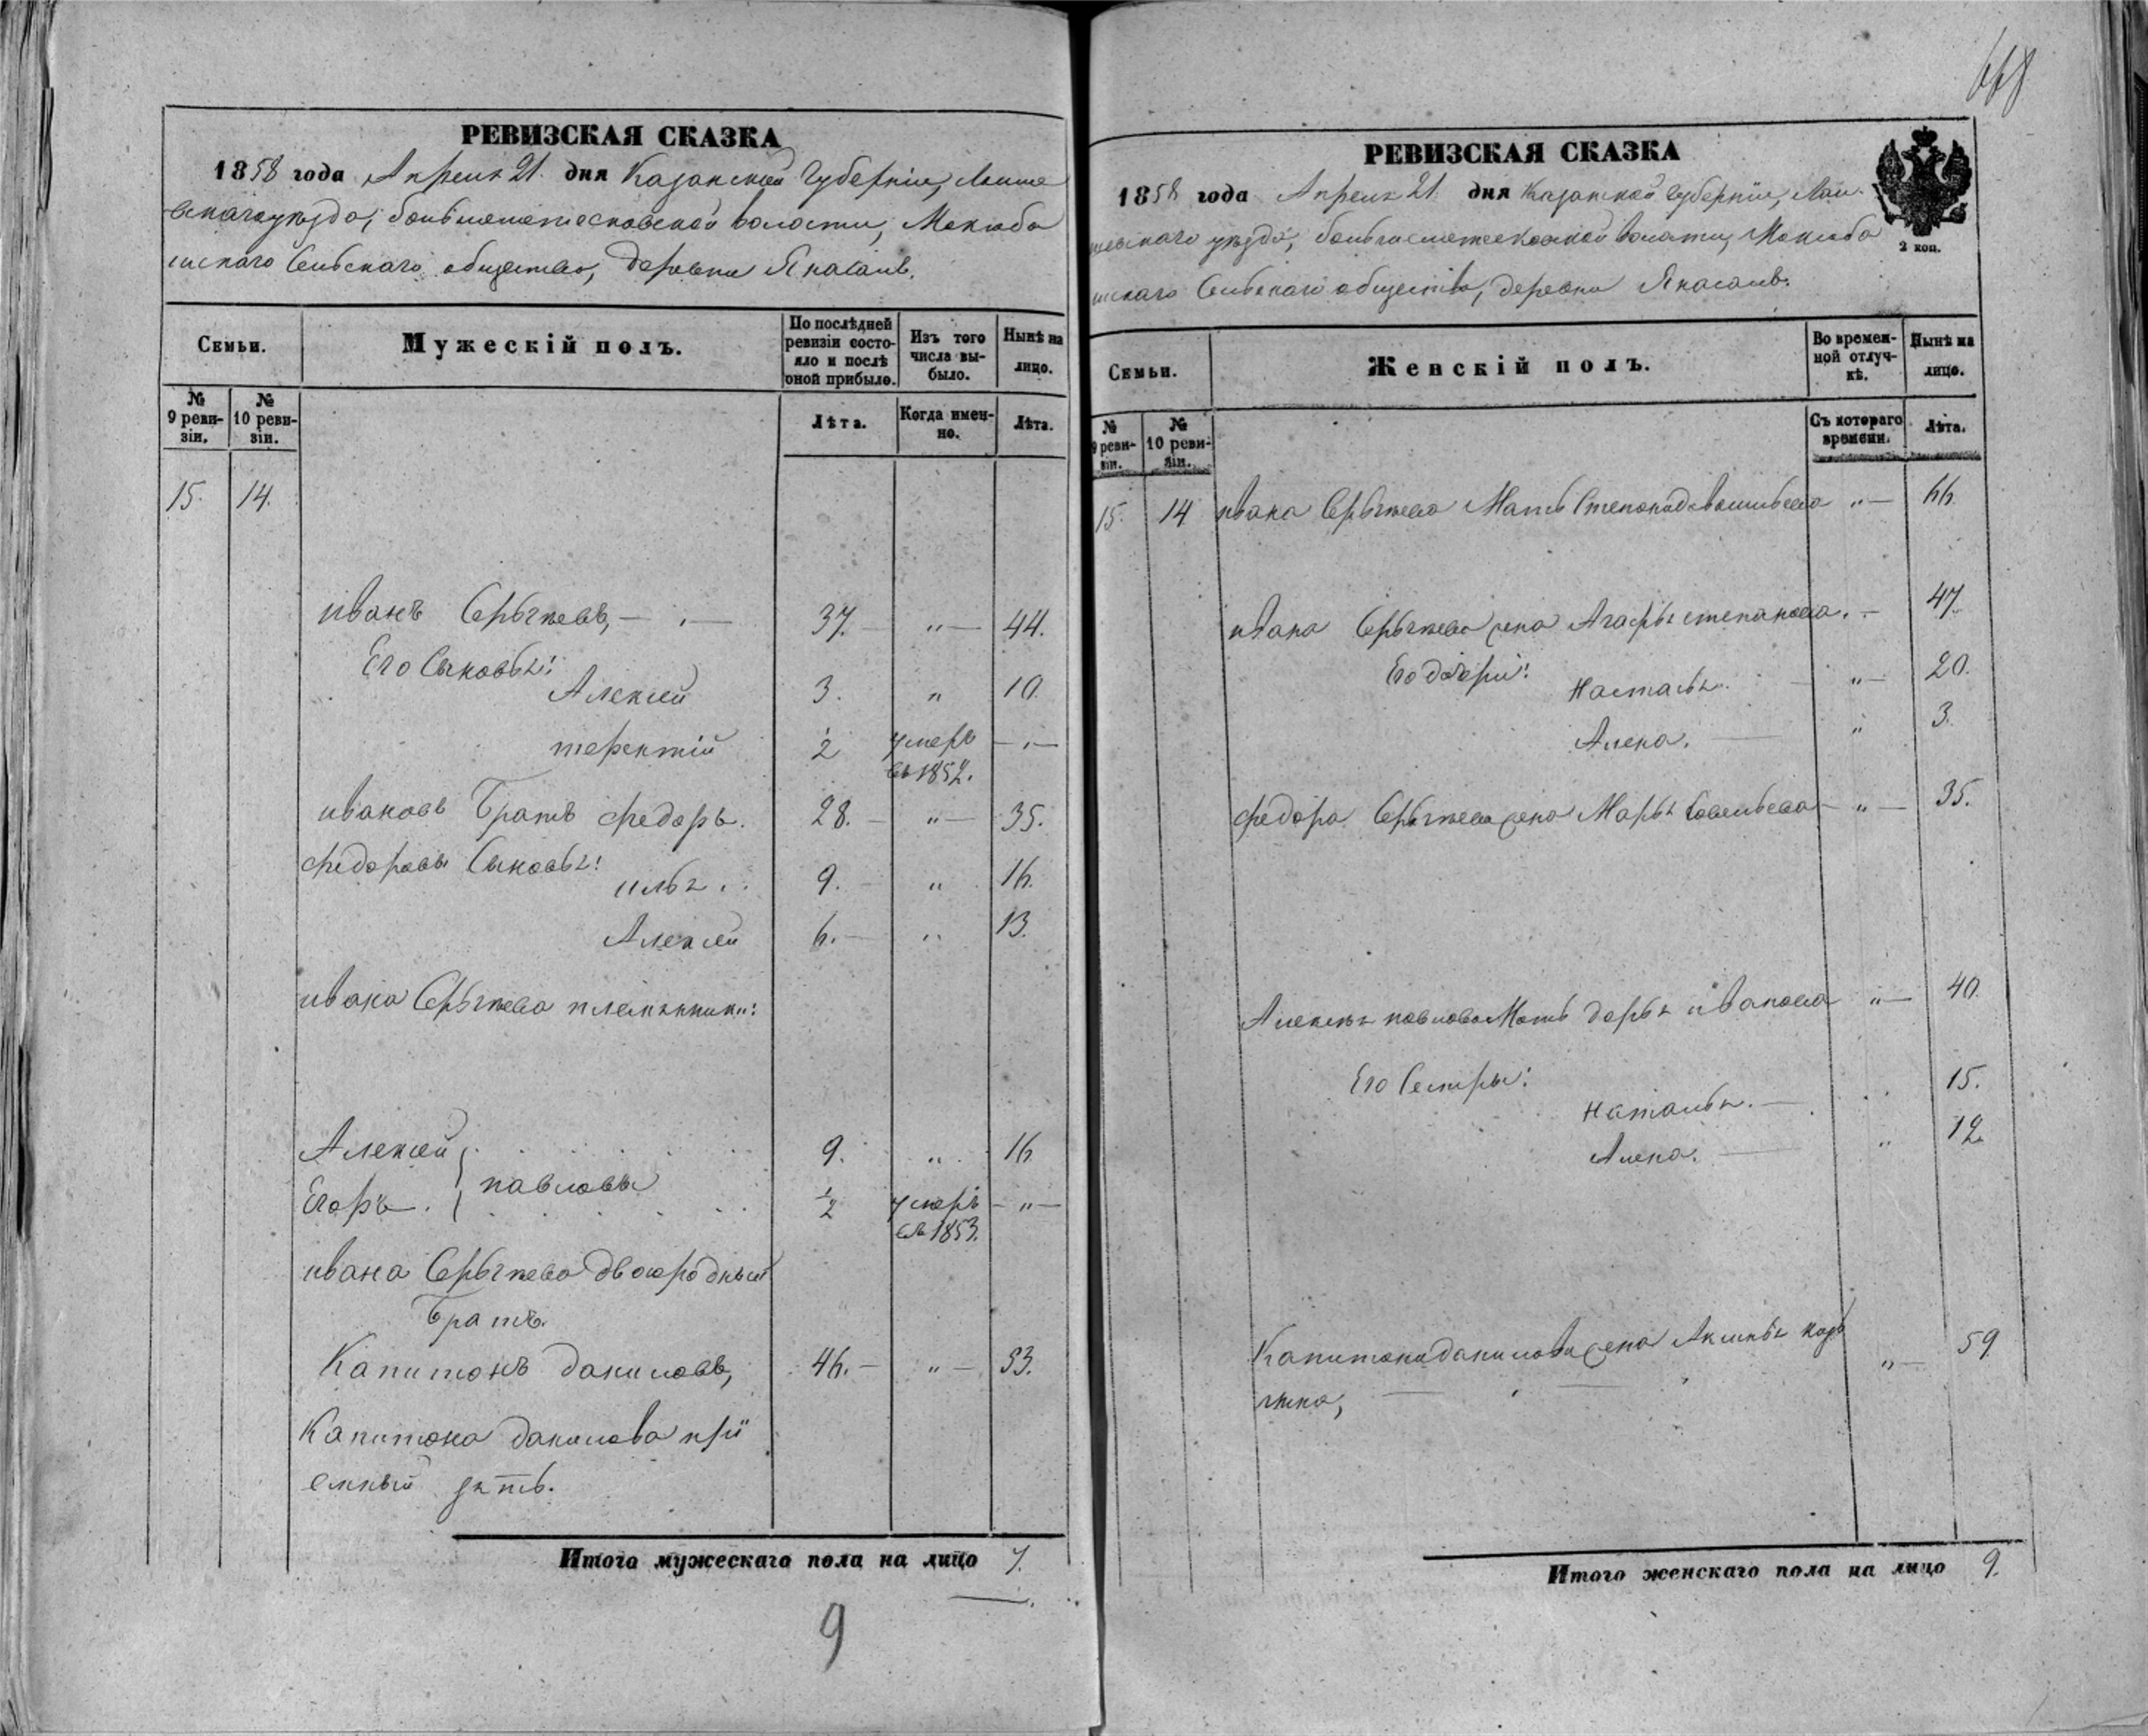 РЕВИЗСКАЯ СКАЗКА
1858 года Апреля 21 дня Казанской Губерніи, Лаише
вскаго уѣзда, волости,
Сельскаго общества, деревни Янасалъ.
Семьи.
Мужескій полъ.
По послѣдней ревизіи состояло и послѣ оной прибыло.
Изъ того числа выбыло.
Нынѣ на лицо.
№ 9 ревизіи.
№ 10 ревизіи.
Лѣта.
Когда именно.
Лѣта.
15. 14.
иванъ Сергѣевъ, — 37. — „ — 44.
Его Сыновья:
Алексей 3. „ 10.
терентій ½ умеръ въ 1852. — „ —
ивановъ Братъ федоръ. 28. — „ — 35.
федоровы Сыновья:
илья . . 9. — „ 16.
Алексей 6. — „ 13.
ивана Сергѣева племянники:
Алексей 9. „ 16.
павловы
Егоръ. ½ умеръ въ 1853. — „ —
ивана Сергѣева двоюродный
братъ.
Капитонъ даниловъ, 46. — „ — 53.
Капитона данилова прі
емный зять.
Итого мужескаго пола на лицо 7.
9
РЕВИЗСКАЯ СКАЗКА
1858 года Апреля 21 дня Казанской Губерніи, Лаи
шевскаго уѣзда, волости,
Сельскаго общества, деревни Янасалъ.
2 коп.
Семьи.
Женскій полъ.
Во временной отлучкѣ.
Нынѣ на лицо.
№ 9 ревизіи.
№ 10 ревизіи.
Съ котораго времени.
Лѣта.
15. 14 ивана Сергѣева Мать Степонида васильева „ — 66.
ивана Сергѣева жена Агафья степанова. — 47.
Его дочери:
настасья. — „ — 20.
Алена. — „ 3.
федора Сергѣева жена Марья Савельева — „ — 35.
Алексея павлова Мать дарья иванова „ — 40.
Его Сестры:
наталья. — „ 15.
Алена. — „ 12.
Капитона данилова жена
„ — 59.
Итого женскаго пола на лицо 9.